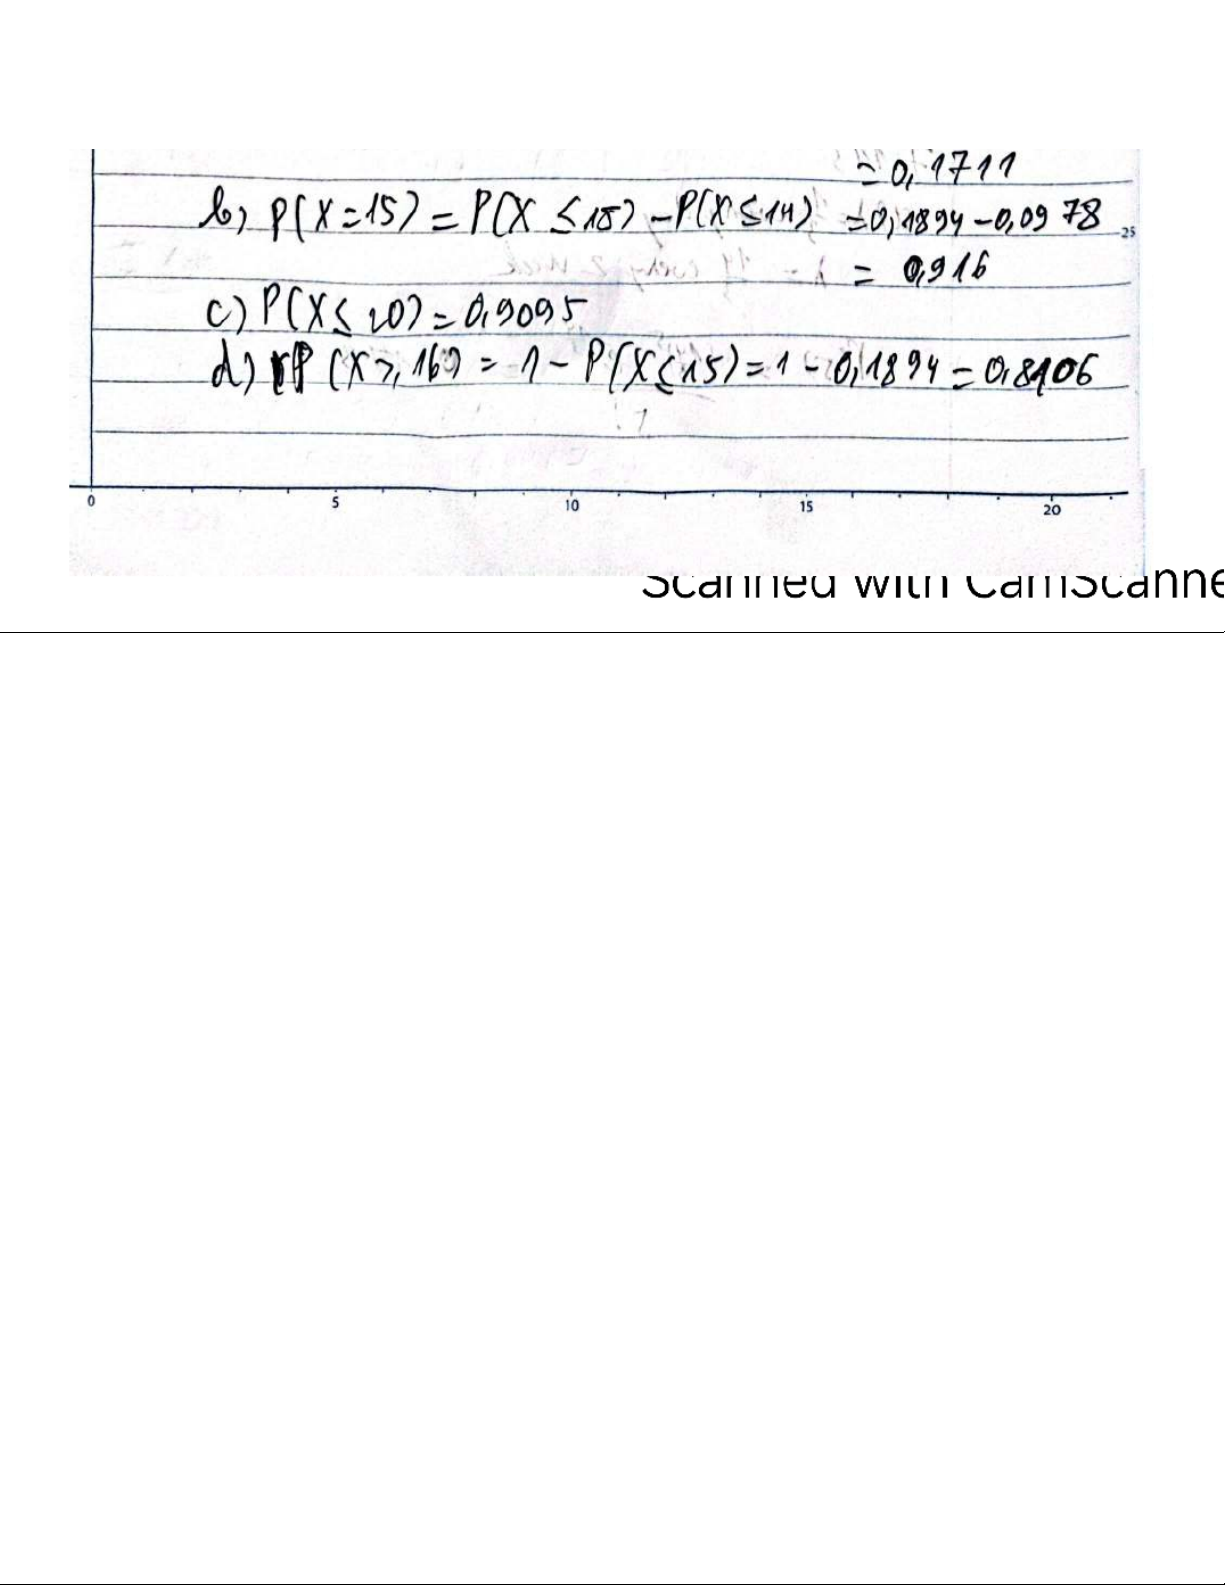 = 0,1711
b) P(X=15) = P(X ≤ 15) - P(X ≤ 14) = 0,1894 - 0,0978
25
= 0,916
c) P(X ≤ 20) = 0,9095
d) P (X ≥ 16) = 1 - P(X ≤ 15) = 1 - 0,1894 = 0,8106
0 5 10 15 20
Scanned with CamScanne